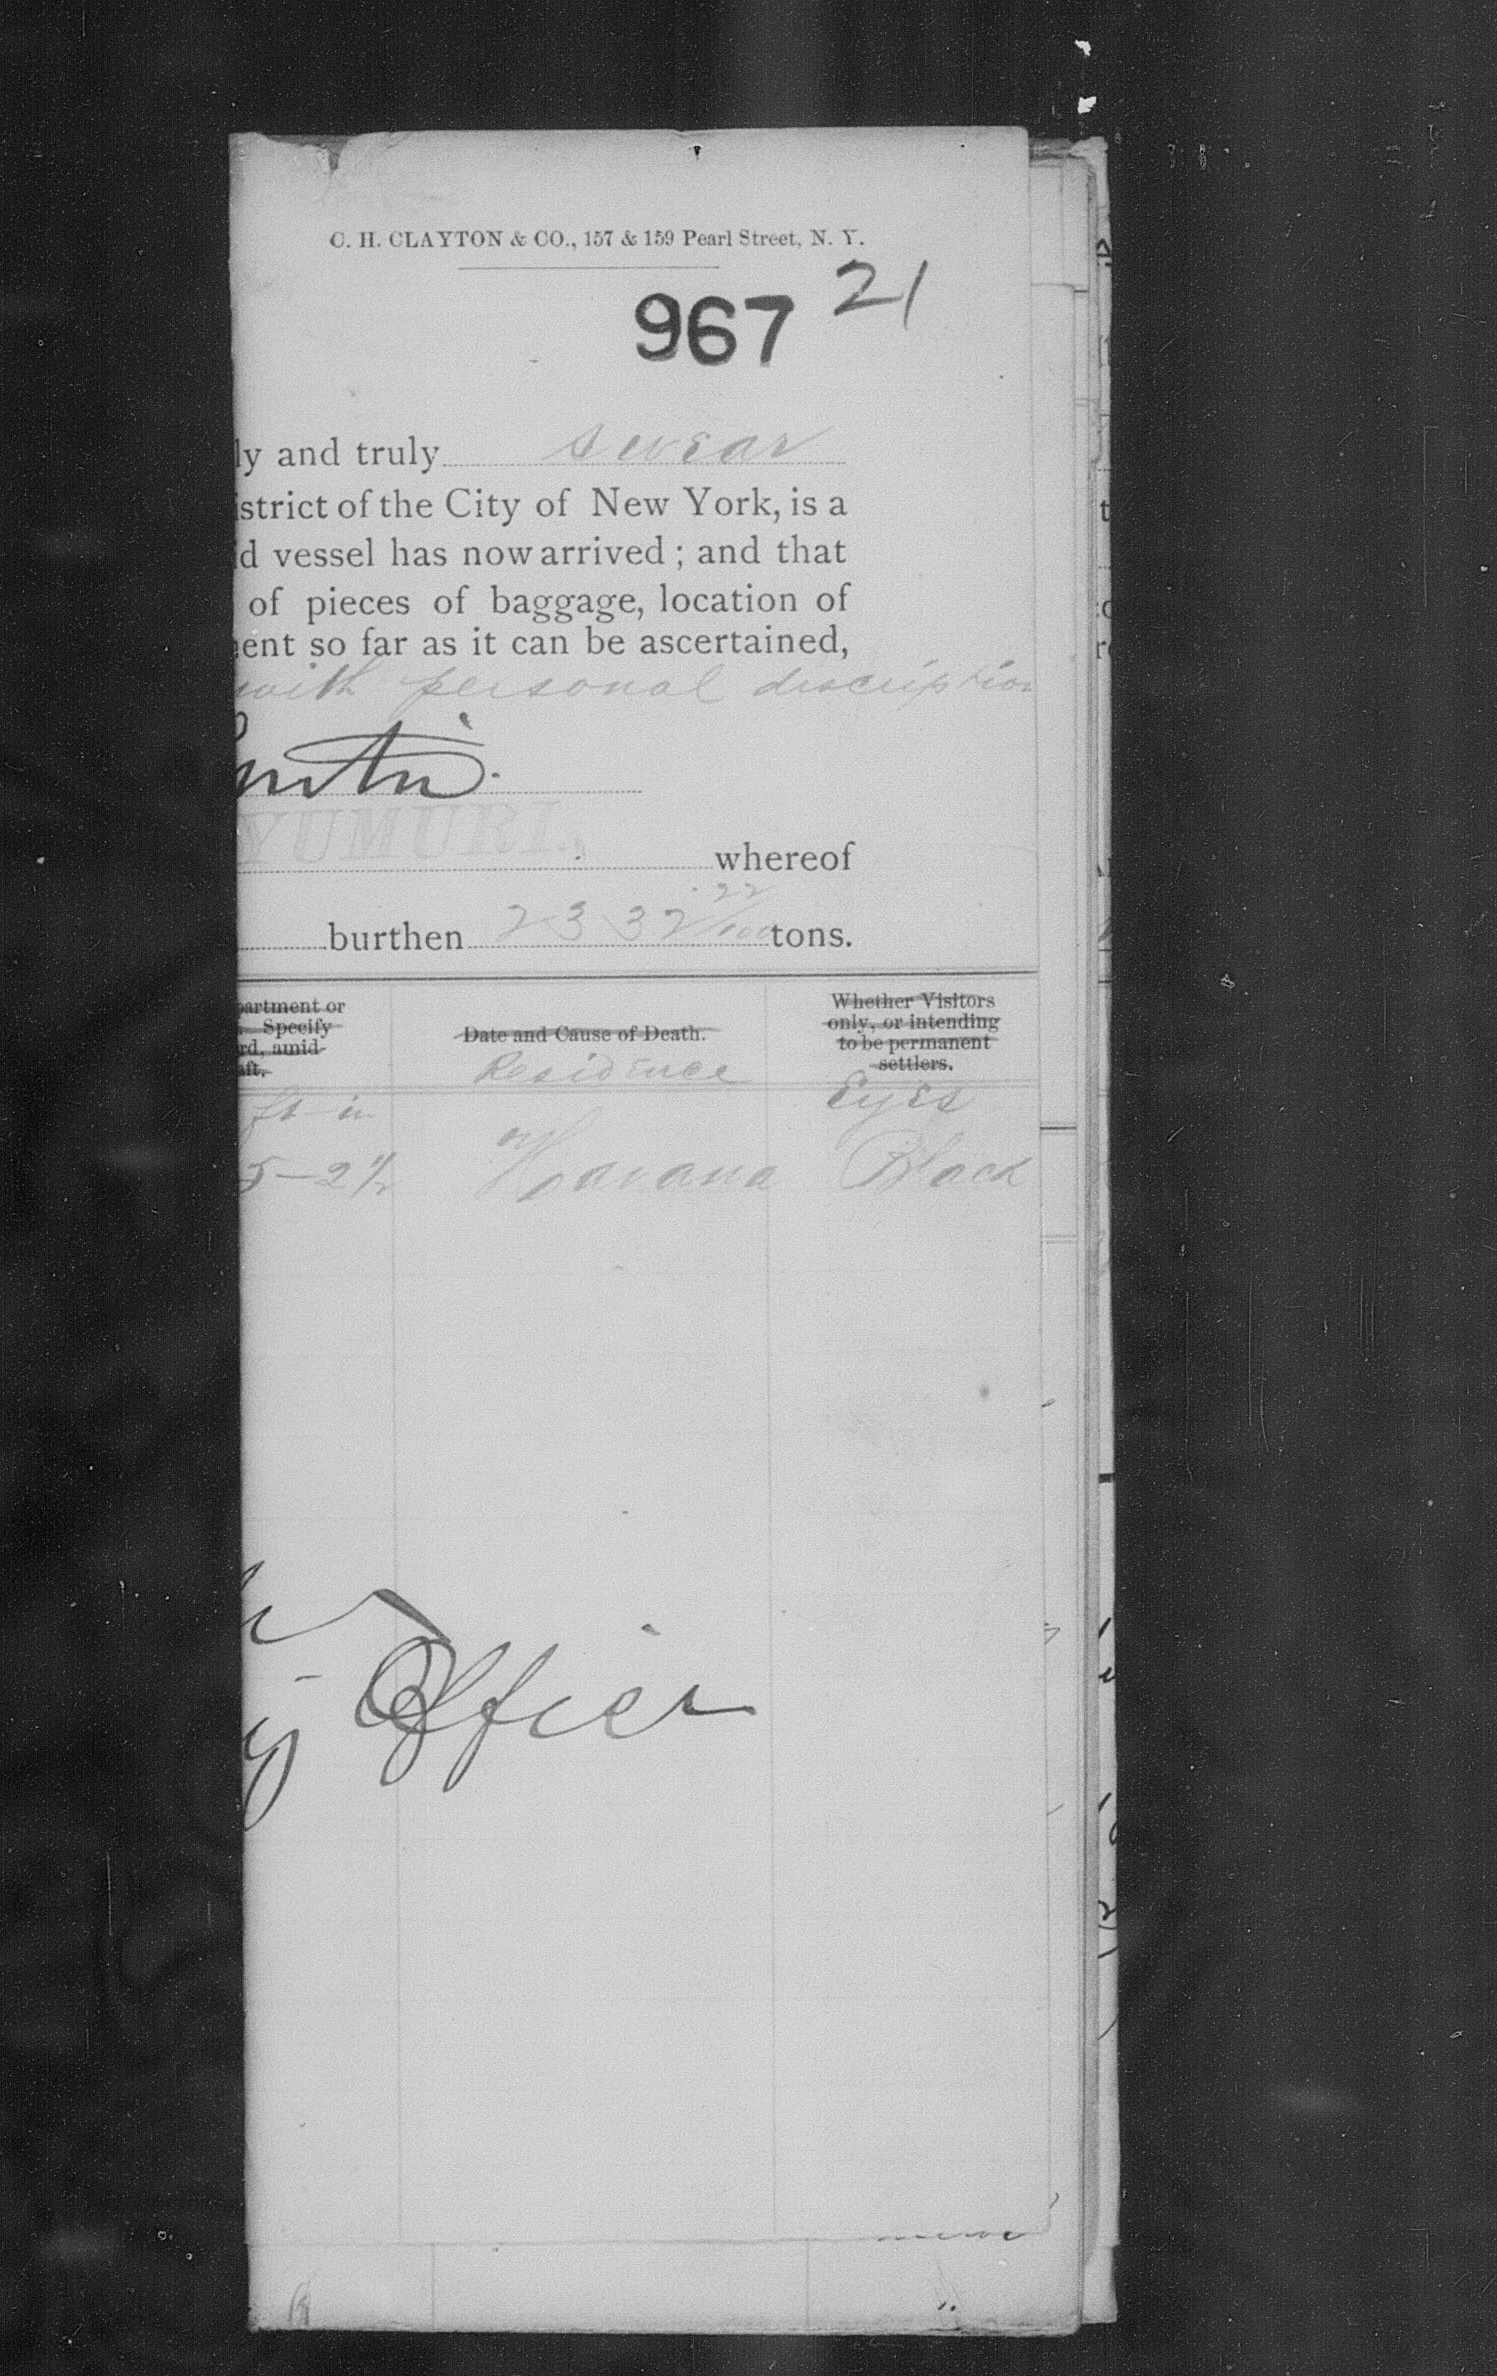 C. H. CLAYTON & CO., 157 & 159 Pearl Street, N. Y.
967 21
ly and truly swear
istrict of the City of New York, is a
d vessel has now arrived; and that
of pieces of baggage, location of
ent so far as it can be ascertained,
with personal description
YUMURI.
whereof
burthen 2332 22/100 tons.
partment or
Specify
rd, amid
aft.
Date and Cause of Death.
Residence
Whether Visitors
only, or intending
to be permanent
settlers.
Eyes
ft in
5-2 1/2 Havana Black
Officer